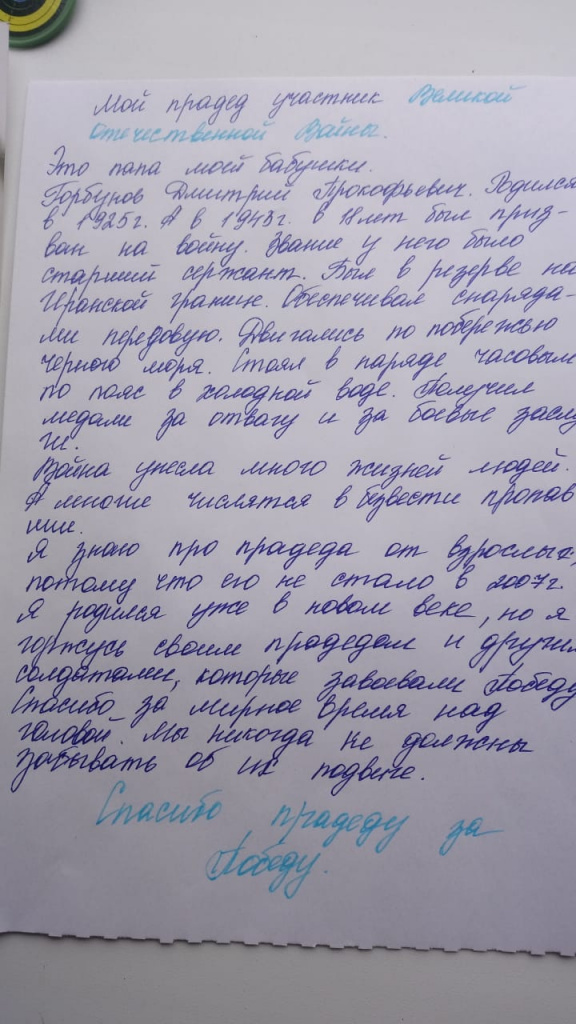 Мой прадед участник Великой
Отечественной Войны.
Это папа моей бабушки.
Горбунов Дмитрий Прокофьевич. Родился
в 1925г. А в 1943г. в 18 лет был приз-
ван на войну. Звание у него было
старший сержант. Был в резерве на
Иранской границ. Обеспечивал снаряда-
ми передовую. Двигались по побережью
Черного моря. Стоял в параде часовым
по пояс в холодной воде. Получил
медали за отвагу и за боевые заслу
ги.
Война унесла много жизней людей.
А многие числятся в безвести пропав
шие.
Я знаю про прадеда от взрослых,
потому что его не стало в 2007г.
Я родился уже в новом веке, но я
горжусь своим прадедом и другими
солдатами, которые завоевали Победу
Спасибо за мирное время над
головой. Мы никогда не должны
забывать об их подвиге.
Спасибо прадеду за
Победу.